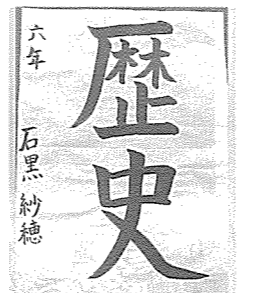 歴史
六年 石黒 紗穂